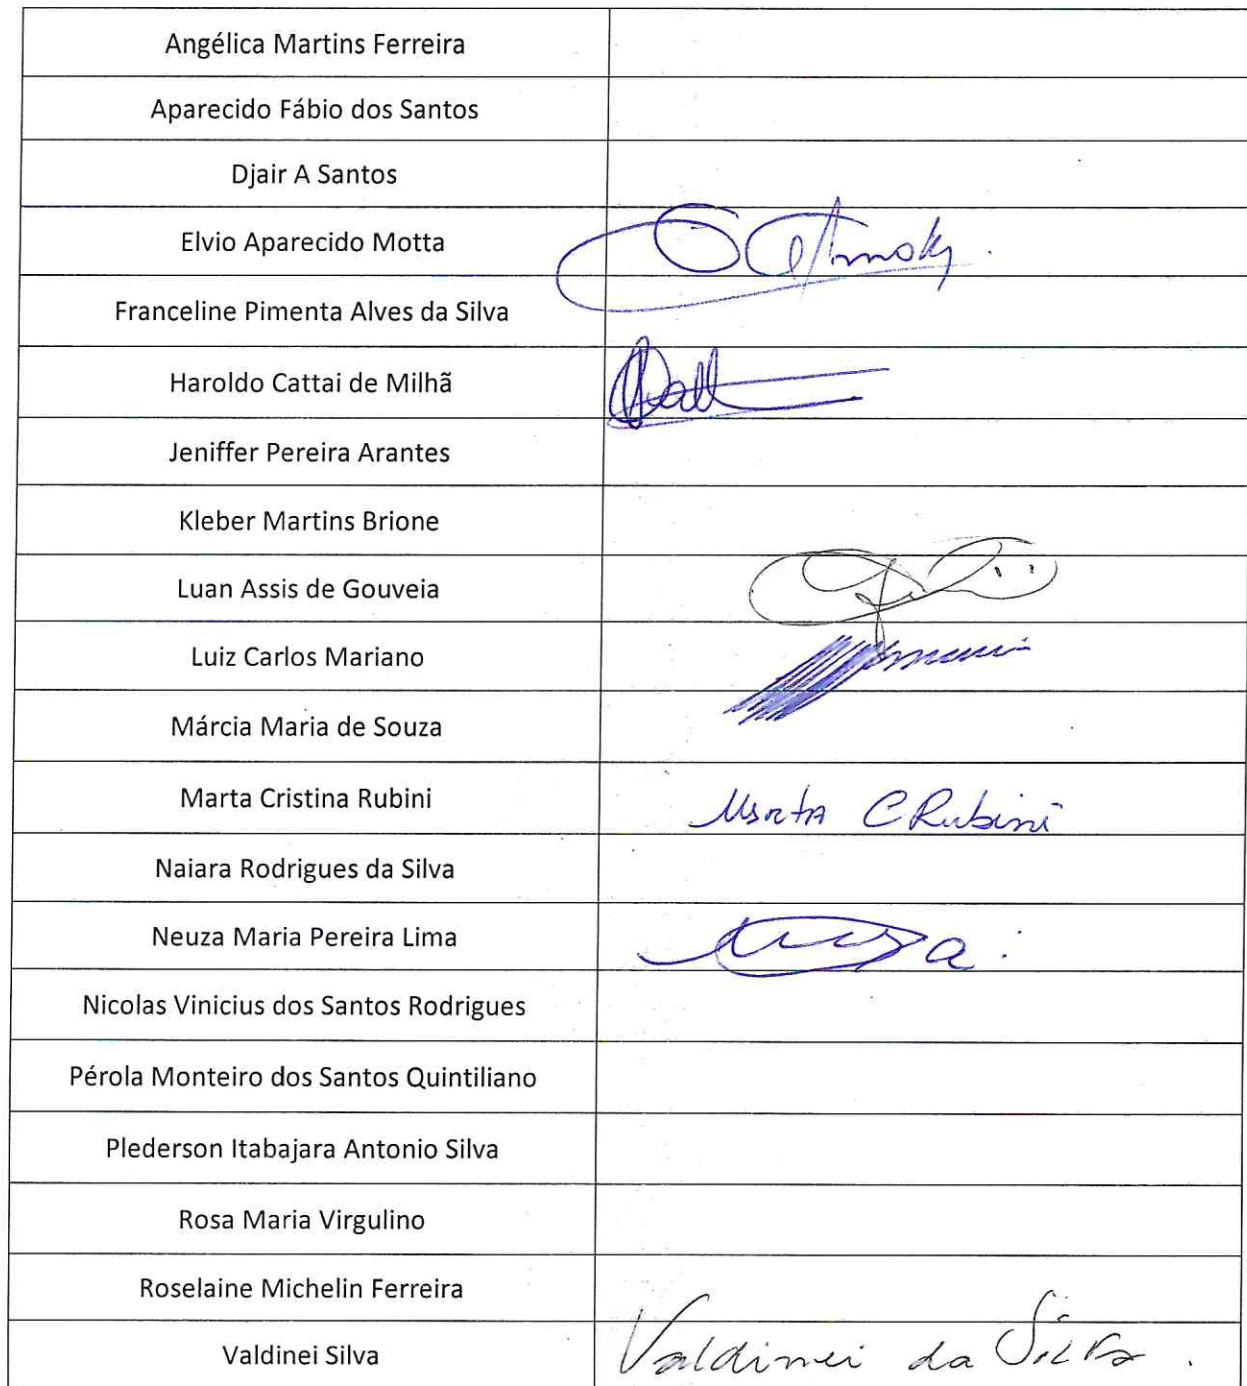 Angélica Martins Ferreira
Aparecido Fábio dos Santos
Djair A Santos
Elvio Aparecido Motta
Franceline Pimenta Alves da Silva
Haroldo Cattai de Milhã
Jeniffer Pereira Arantes
Kleber Martins Brione
Luan Assis de Gouveia
Luiz Carlos Mariano
Márcia Maria de Souza
Marta Cristina Rubini Marta C Rubini
Naiara Rodrigues da Silva
Neuza Maria Pereira Lima
Nicolas Vinicius dos Santos Rodrigues
Pérola Monteiro dos Santos Quintiliano
Plederson Itabajara Antonio Silva
Rosa Maria Virgulino
Roselaine Michelin Ferreira
Valdinei Silva Valdinei da Silva.